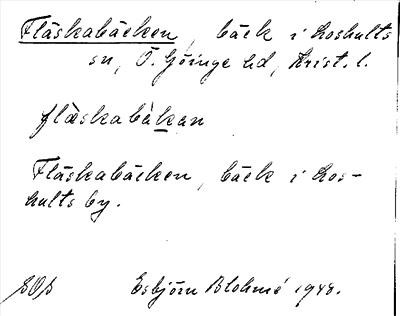 Fläskabäcken, bäck i Loshults
sn, Ö. Göinge hd, Krist. l.
flàskabàkan
Fläskabäcken, bäck i Los-
hults by.
Esbjörn Blohmé 1948.